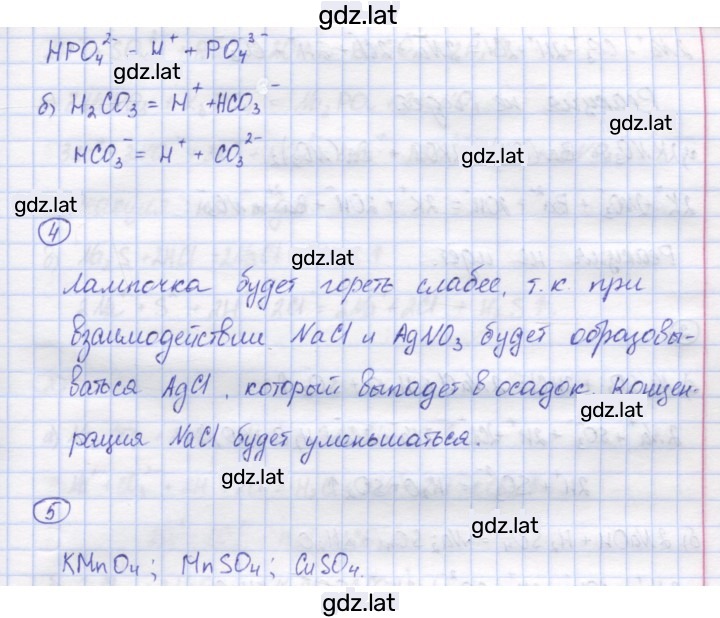 gdz.lat
HPO₄²⁻ - H⁺ + PO₄³⁻
gdz.lat
б) H₂CO₃ = H⁺ + HCO₃⁻
gdz.lat
HCO₃⁻ = H⁺ + CO₃²⁻
gdz.lat
gdz.lat
4
gdz.lat
Лампочка будет гореть слабее, т.к при
взаимодействии NaCl и AgNO₃ будет образовы-
ваться AgCl, который выпадет в осадок. Концен-
gdz.lat
рация NaCl будет уменьшаться.
gdz.lat
5
gdz.lat
KMnO₄; MnSO₄; CuSO₄.
gdz.lat